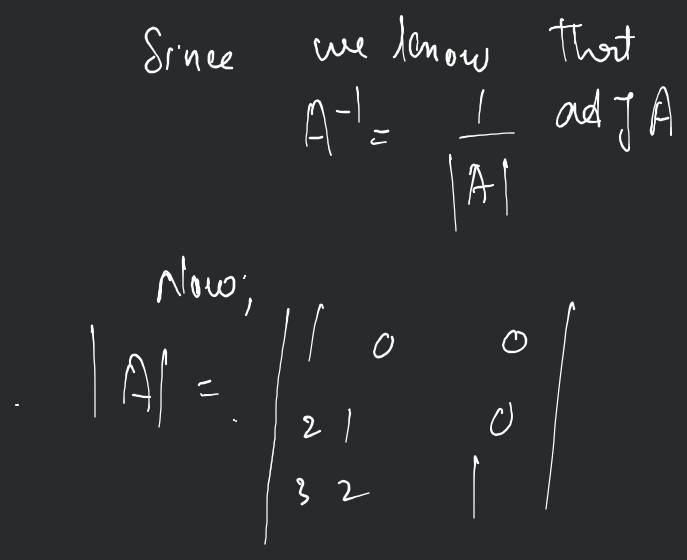 Since we know that
A⁻¹ = 1/|A| adj A
Now;
|A| = | 1 0 0 |
2 1 0
3 2 1